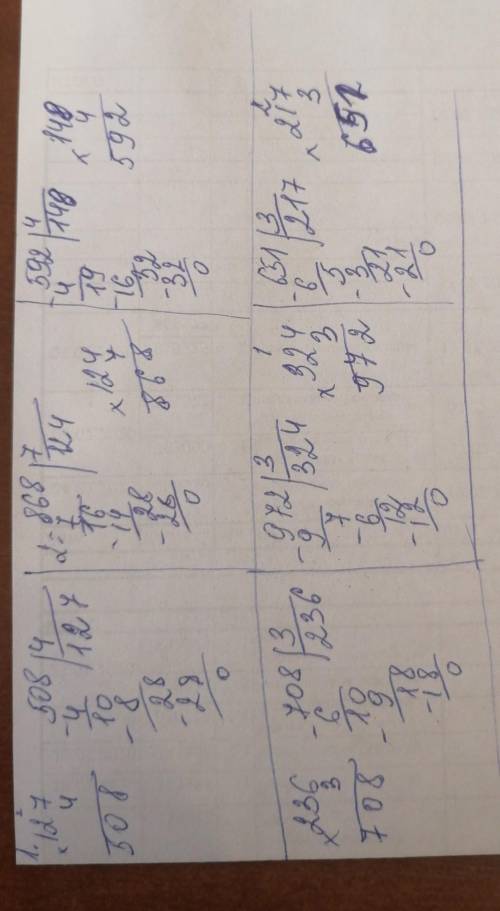 1. 2
×127
4
508
-508|4
4 |127
10
-8
28
-28
0
2. -868|7
7 |124
16
-14
28
-28
0
×124
7
868
-592|4
4 |148
19
-16
32
-32
0
×148
4
592
×236
3
708
-708|3
6 |236
10
-9
18
-18
0
-972|3
9 |324
7
-6
12
-12
0
1
×324
3
972
-651|3
6 |217
5
-3
21
-21
0
2
×217
3
651